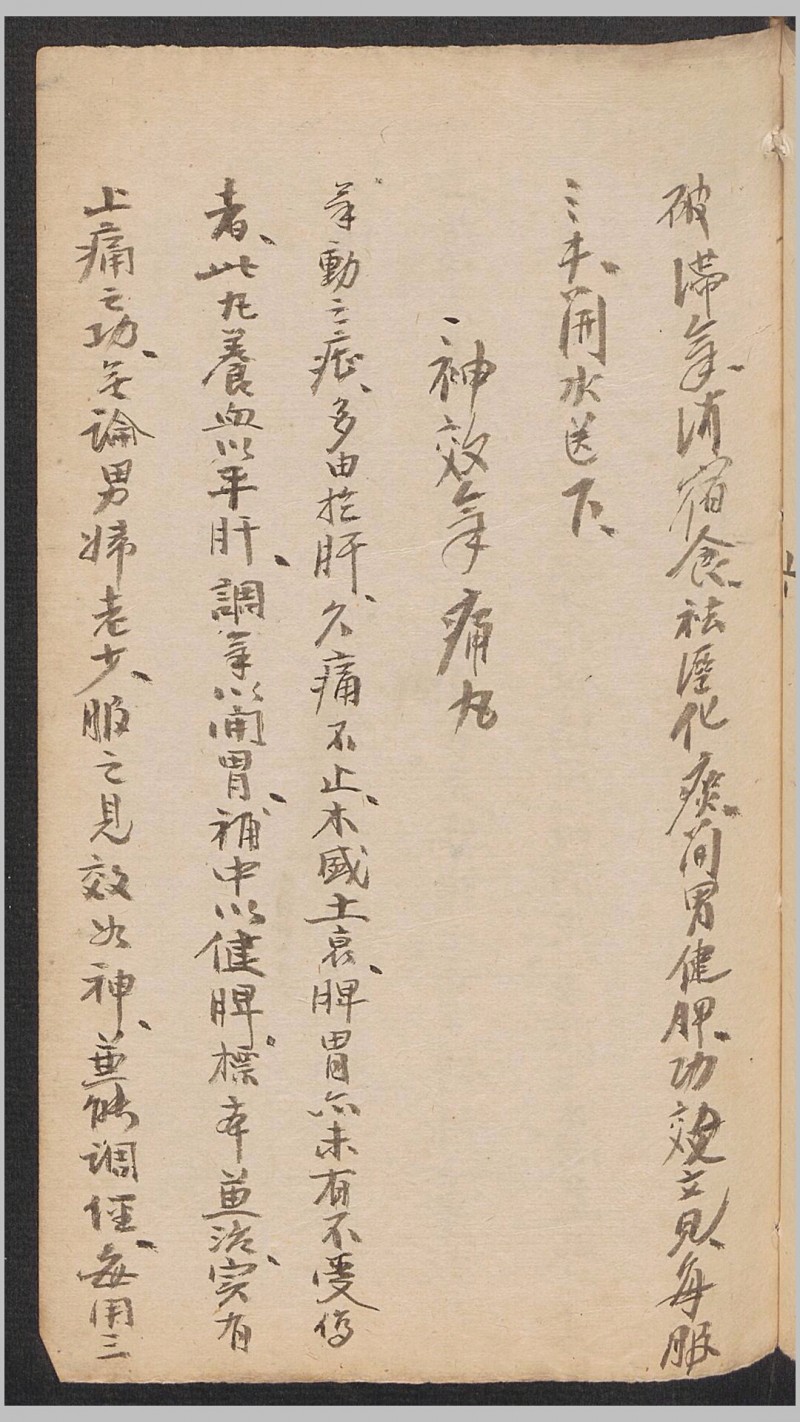 破滯氣、消宿食、祛溼化痰、開胃健脾、功效立見、每服
三才、開水送下、
神效氣痛丸
氣動之症、多由於肝、久痛不止、木盛土衰、脾胃亦未有不受傷
者、此丸養血以平肝、調氣以開胃、補中以健脾。標本並治、实有
止痛之功、無論男婦老少、服之見效如神、並能調經、每用三